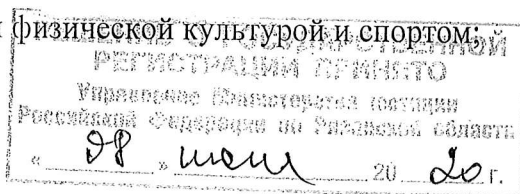 физической культурой и спортом;
РЕШЕНИЕ О ГОСУДАРСТВЕННОЙ
РЕГИСТРАЦИИ ПРИНЯТО
Управление Министерства юстиции
Российской Федерации по Рязанской области
« » 20 20 г.